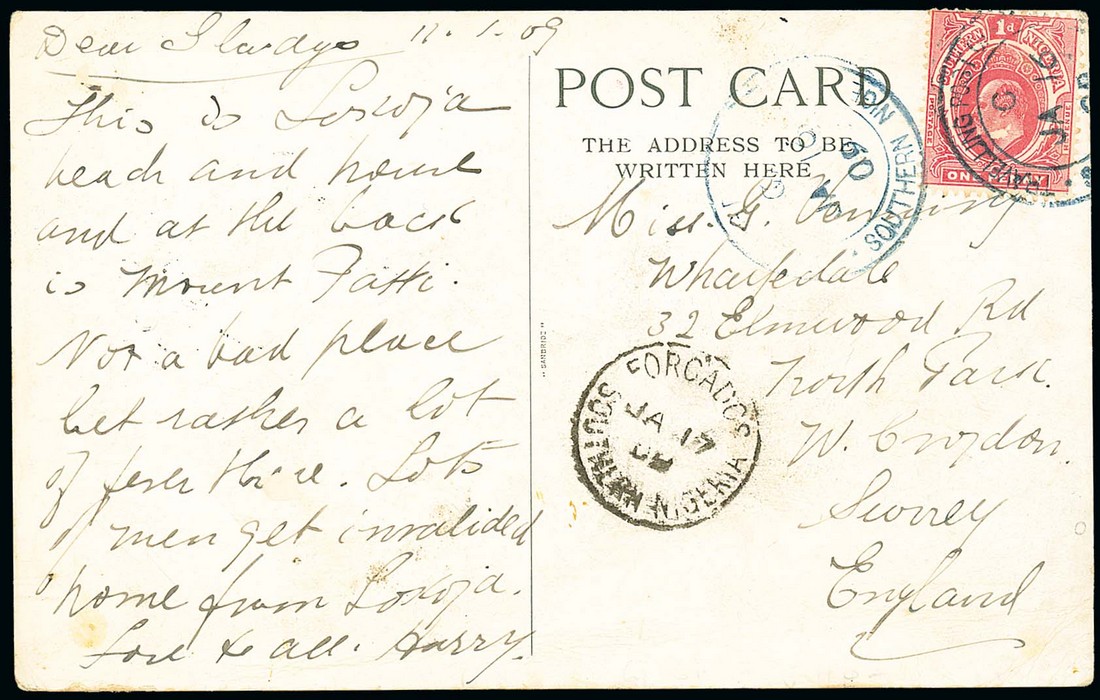 Dear Gladys 11.1.09
This is Lokoja
beach and house
and at the back
is Mount Patti.
Not a bad place
but rather a lot
of fever there. Lots
of men get invalided
home from Lokoja.
Love to all. Harry.
POST CARD
THE ADDRESS TO BE
WRITTEN HERE
Miss. G.
Wharfedale
32 Elmwood Rd
North Park.
W. Croydon.
Surrey
England
"SANBRIDE"
SOUTHERN NIGERIA
1d
POSTAGE
REVENUE
ONE PENNY
TRAVELLING POST
JA 21
09
SOUTHERN
JA
09
FORCADOS
JA 17
09
SOUTHERN NIGERIA